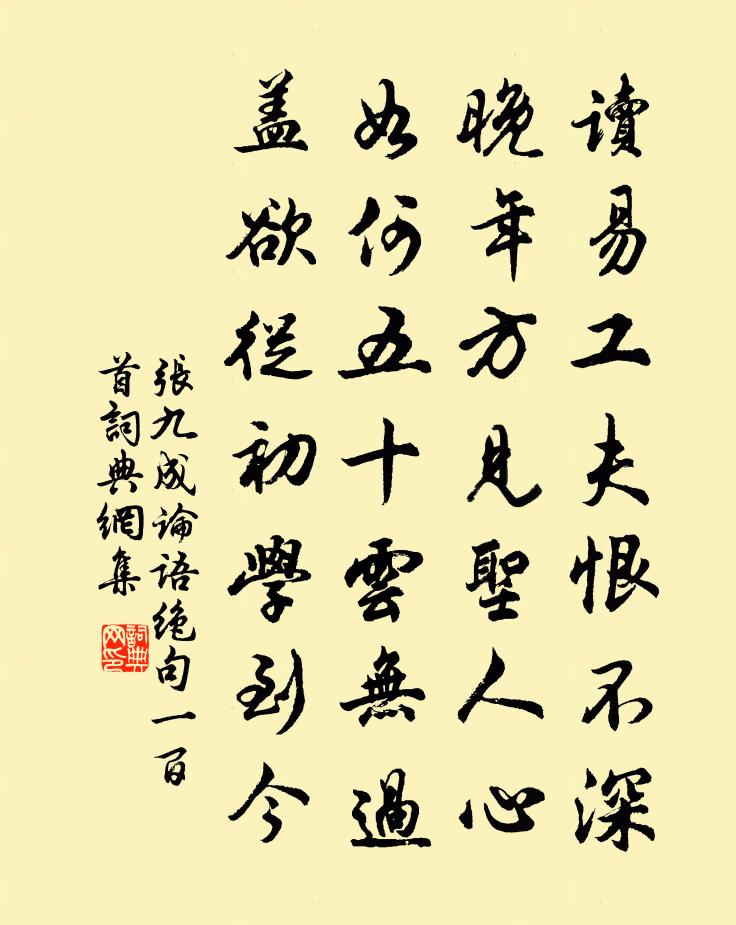 讀易工夫恨不深
晚年方見聖人心
如何五十雲無過
盖欲從初學到今
張九成論語絶句一百
首詞典網集
詞典
网印